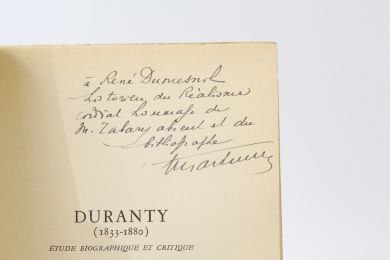 à René Dumesnil
historien du Réalisme
cordial hommage de
M. Tabary absent et du
bithographe
DURANTY
(1833-1880)
ÉTUDE BIOGRAPHIQUE ET CRITIQUE